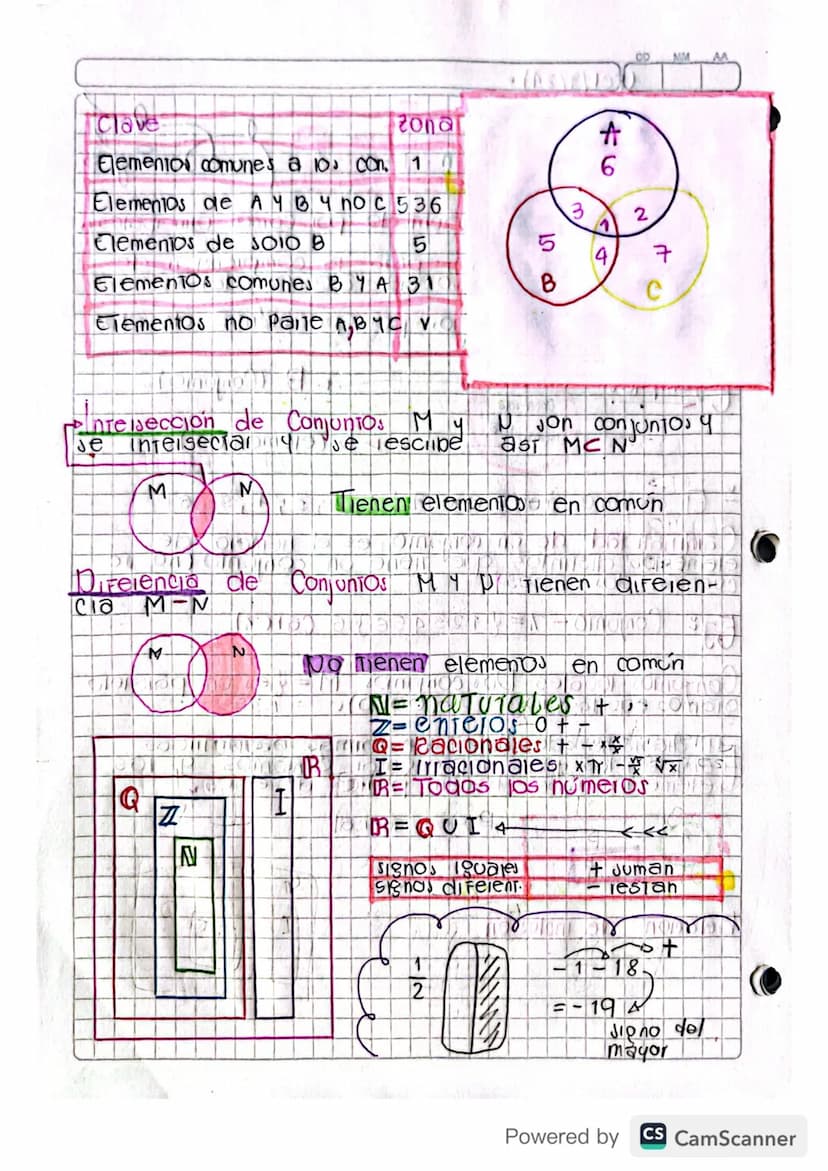 DD MM AA
Clave zona
Elementos comunes a los con. 1
Elementos de A y B y no C 536
Elementos de solo B 5
Elementos comunes B y A 31
Elementos no parte A,B y C V
A
6
3 1 2
5 4 7
B C
Intersección de Conjuntos M y N son conjuntos y
se intersectan y se escribe así M⊂N
M N
Tienen elementos en común
Diferencia de Conjuntos M y N tienen diferen-
cia M-N
M N
No Tienen elementos en común
N= naturales +
Z= enteros 0 + -
Q= Racionales + -
I= irracionales
R= Todos los números
R
Q
Z
I
N
R = Q U I
signos iguales + suman
signos diferent. - restan
1/2
+
-1-18
=-19
signo del
mayor
Powered by CS CamScanner